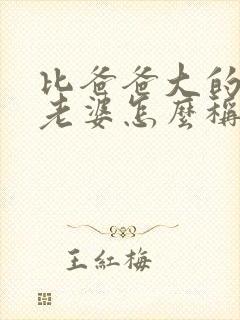 比爸爸大的
老婆怎麼稱
王紅梅